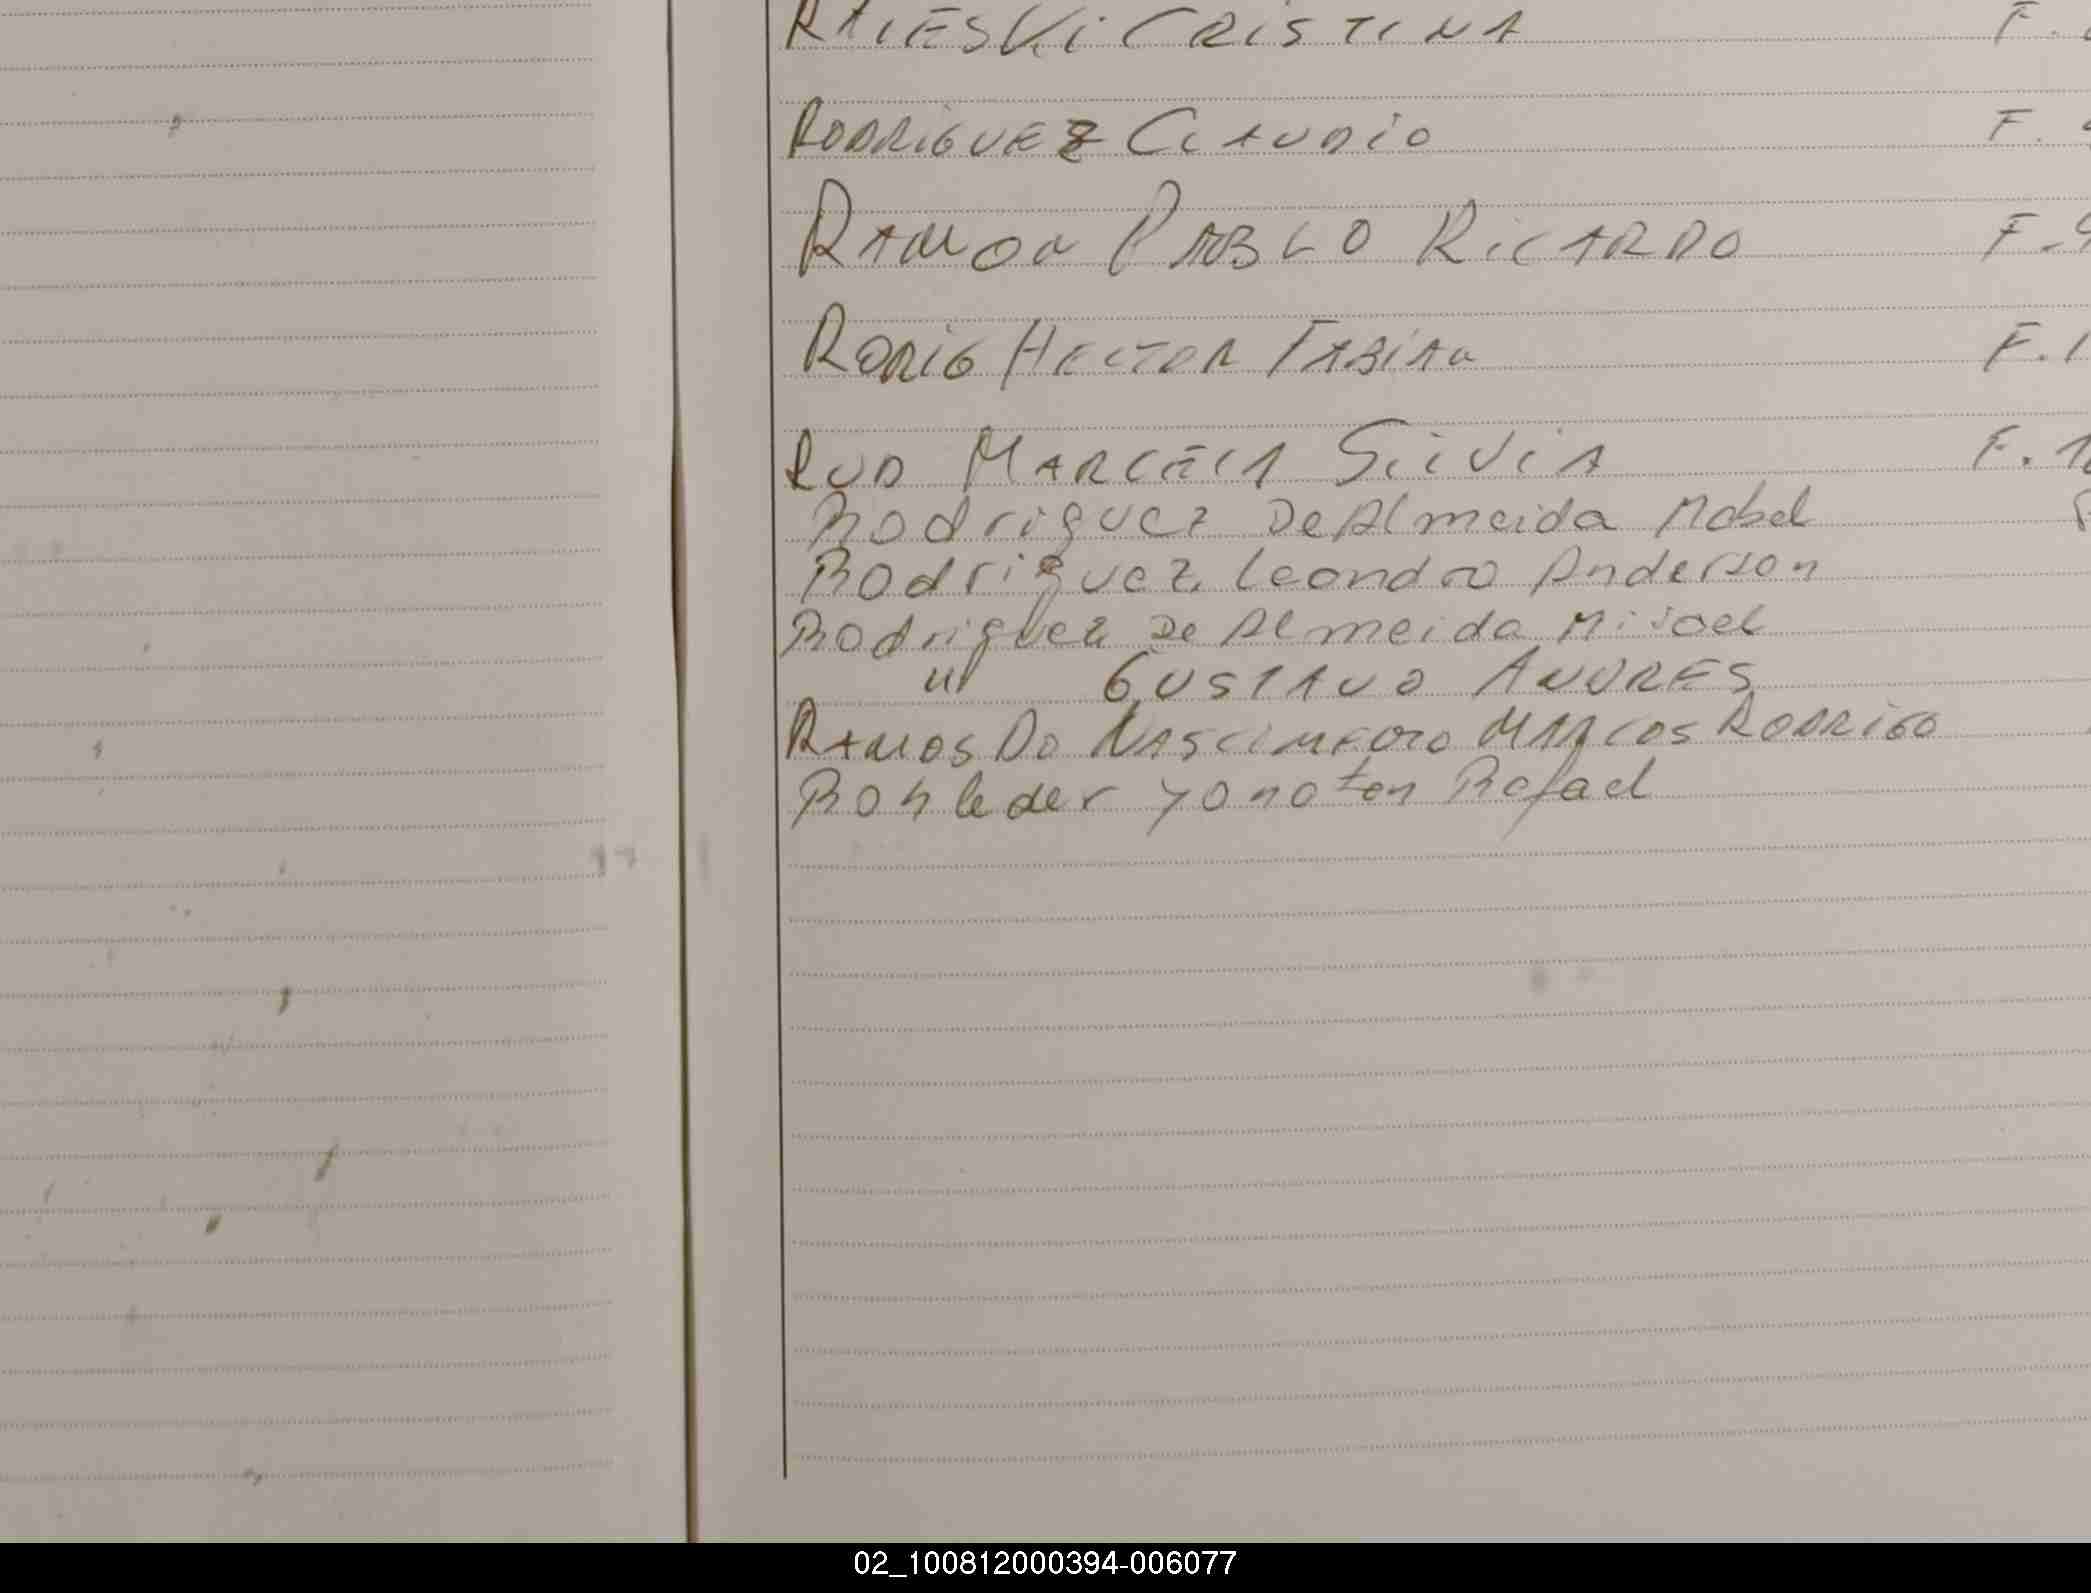 RALESKI CRISTINA F.
RODRIGUEZ CLAUDIO F.
RAMON PABLO RICARDO F-9
RODIG HECTOR FABIAN F.1
RUD MARCELA SILVIA F.1
Rodriguez De Almeida Mabel
Rodriguez Leandro Anderson
Rodriguez De Almeida Misael
" GUSTAVO ANDRES
RAMOS DO NASCIMENTO MARCOS RODRIGO
Rohleder yonaten Rafael
02_100812000394-006077